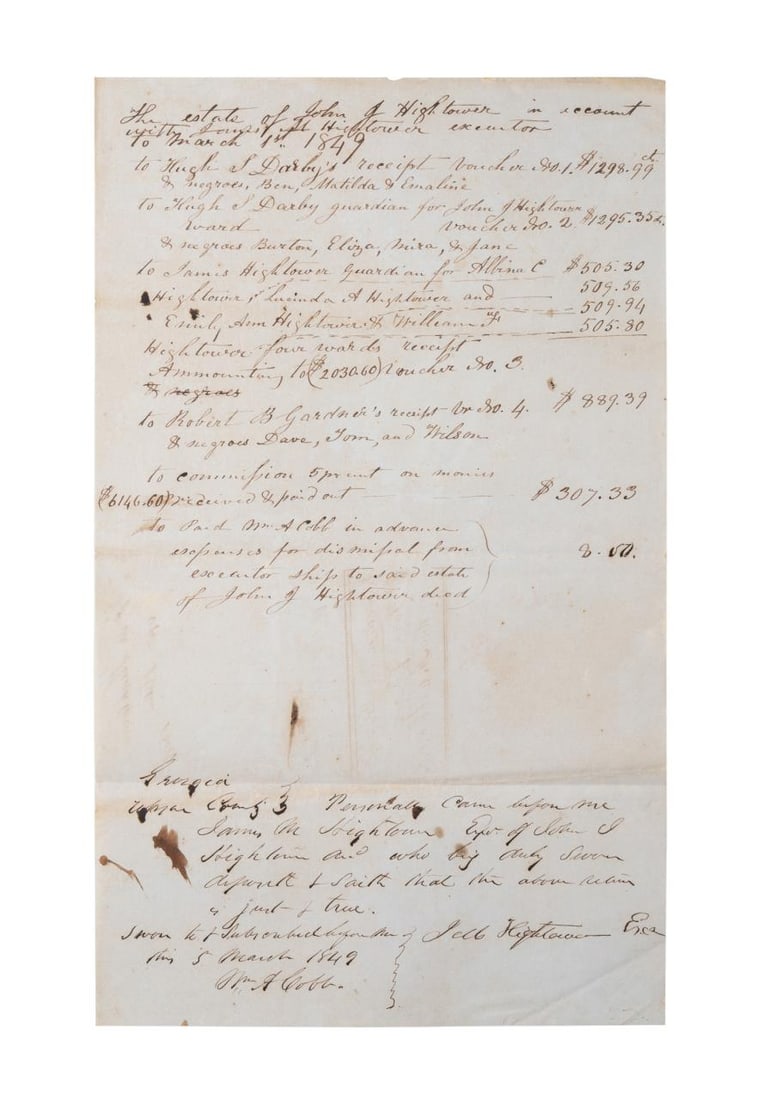 The estate of John J Hightower in account
with James M Hightower executor
to March 1st 1849
to Hugh S Darby's receipt voucher No. 1. $1298.99 cts
& negroes, Ben, Matilda & Emaline
to Hugh S Darby guardian for John J Hightower
ward voucher No. 2 $1295.35
& negroes Burton, Eliza, Mira, & Jane
to James Hightower Guardian for Albina C $505.30
Hightower, Lucinda A Hightower and 509.56
Emily Ann Hightower & William 509.94
505.80
Hightower four wards receipt
Ammounting to ($2030.60) Voucher No. 3.
& negroes
to Robert B Gardner's receipt Vr No. 4. $889.39
& negroes Dave, Tom, and Wilson
to commission 5 prcent on monies
($6146.60) received & paid out $307.33
to Paid Wm A Cobb in advance
expenses for dismissal from 8.00.
executor ship to said estate
of John J Hightower died
Georgia
County Personally came before me
James M Hightower Exr of John J
Hightower and who being duly sworn
deposeth & saith that the above return
is just & true.
Sworn to & subscribed before me J M Hightower Exr
this 5 March 1849
Wm A Cobb.